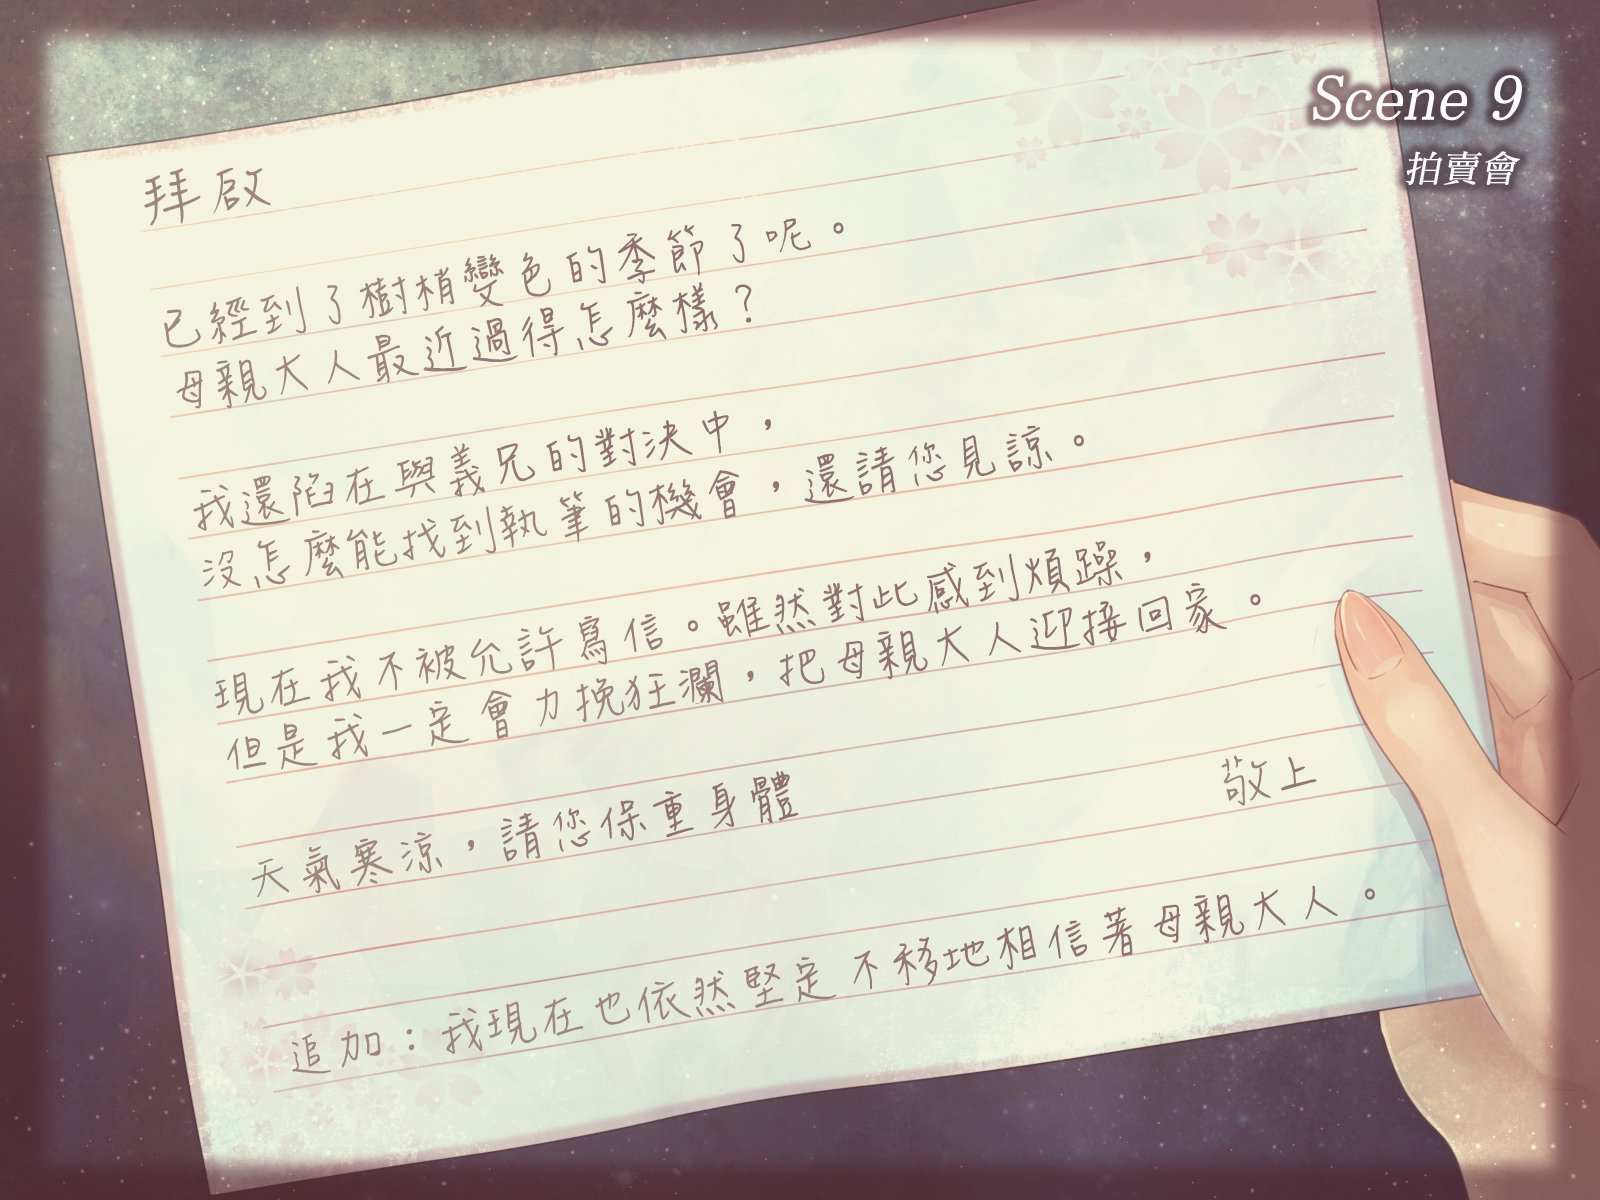 Scene 9
拍賣會
拜啟
已經到了樹梢變色的季節了呢。
母親大人最近過得怎麼樣？
我還陷在與義兄的對決中，
沒怎麼能找到執筆的機會，還請您見諒。
現在我不被允許寫信。雖然對此感到煩躁，
但是我一定會力挽狂瀾，把母親大人迎接回家。
天氣寒涼，請您保重身體
敬上
追加：我現在也依然堅定不移地相信著母親大人。